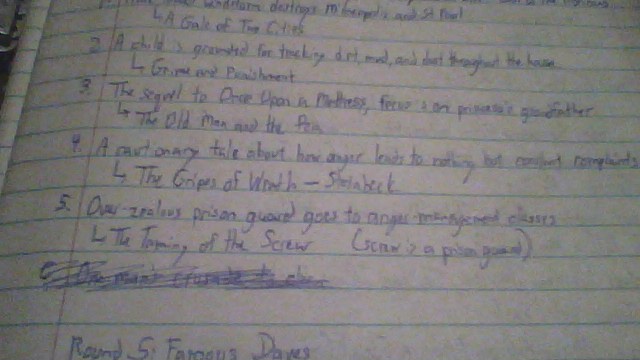 windstorm destroys Minneapolis and St Paul
↳ A Gale of Two Cities
2. A child is grounded for tracking dirt, mud, and dust throughout the house
↳ Grime and Punishment
3. The sequel to Once Upon a Mattress, focus is on princess's grandfather
↳ The Old Man and the Pea
4. A cautionary tale about how anger leads to nothing but constant complaints
↳ The Gripes of Wrath - Steinbeck
5. Over-zealous prison guard goes to anger-management classes
↳ The Taming of the Screw (screw is a prison guard)
One man's crusade to
Round 5: Famous Daves